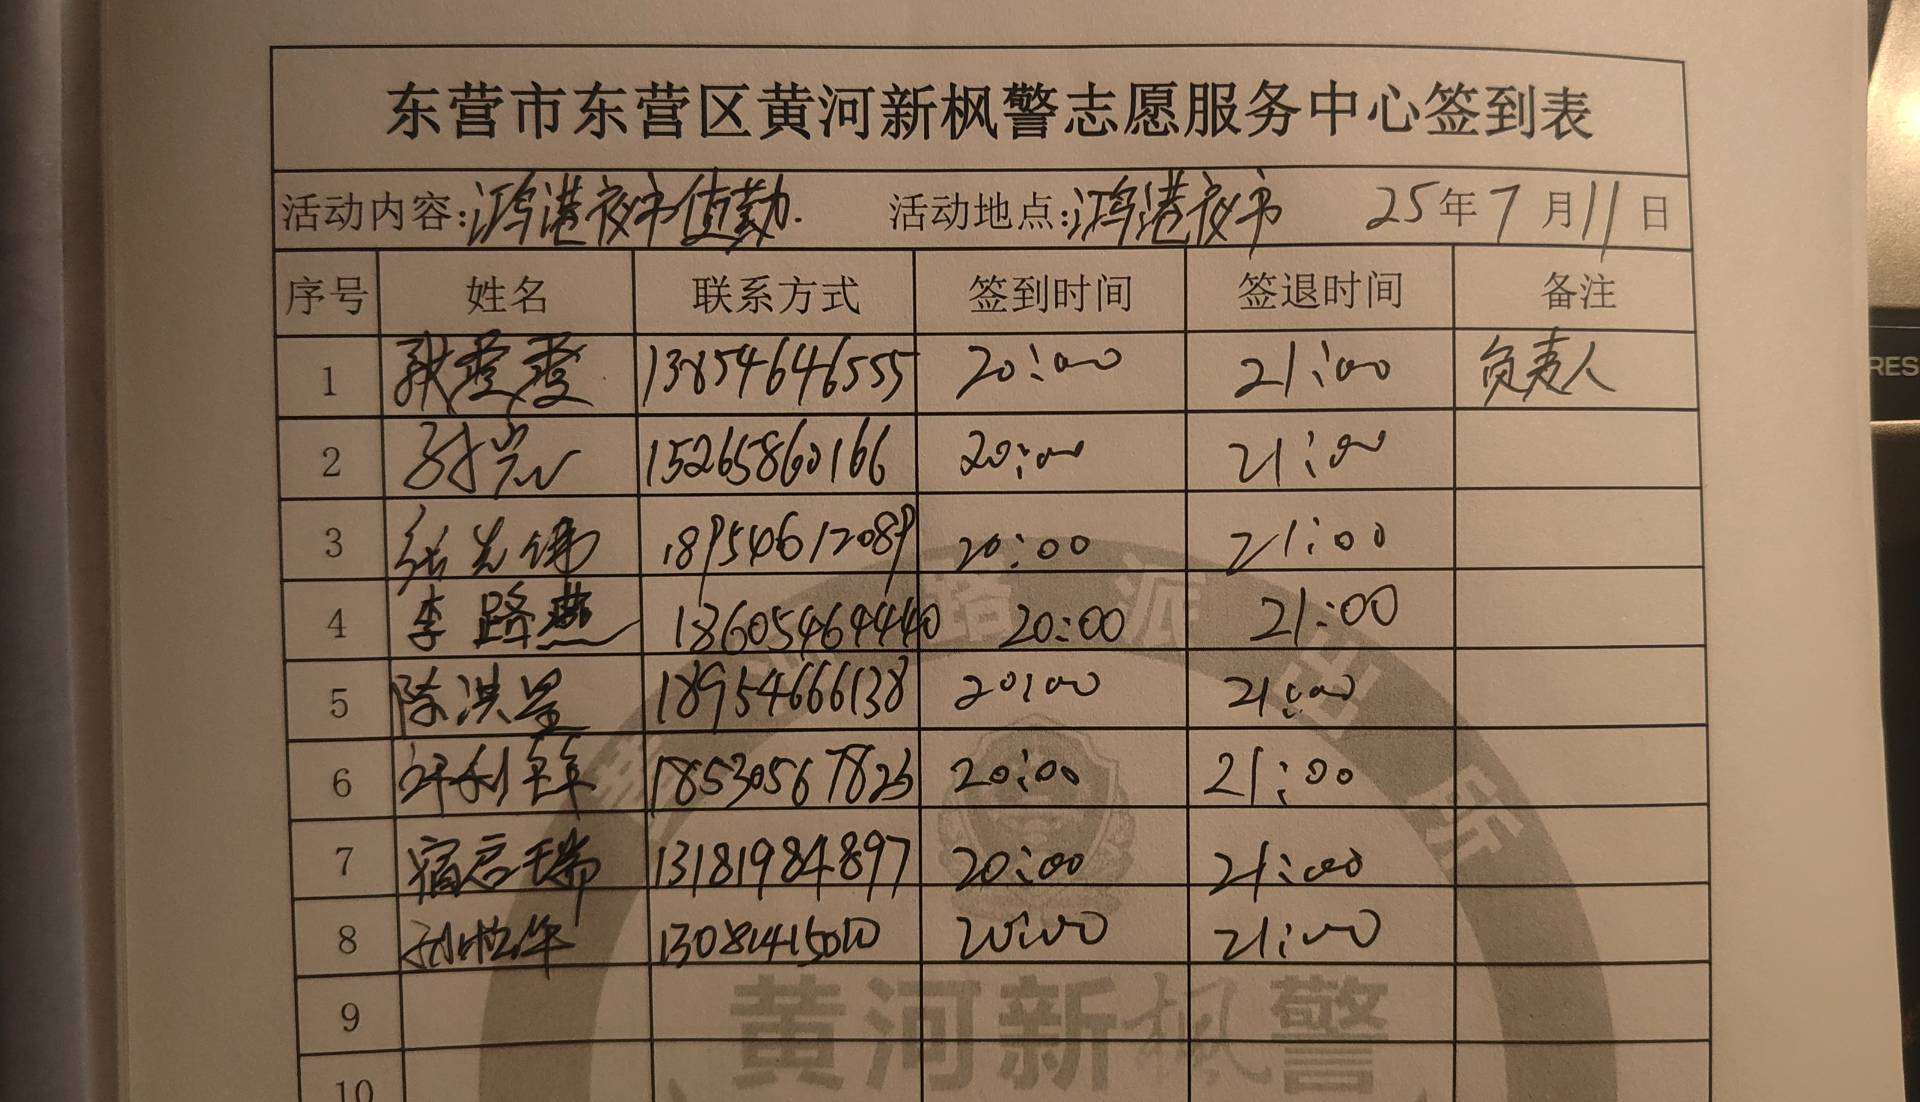 东营市东营区黄河新枫警志愿服务中心签到表
活动内容:鸿港夜市值勤. 活动地点:鸿港夜市 25年7月11日
序号 姓名 联系方式 签到时间 签退时间 备注
1 13854646555 20:00 21:00 负责人
2 15265860166 20:00 21:00
3 张光伟 18954612089 20:00 21:00
4 李路燕 18605464440 20:00 21:00
5 陈洪星 18954666138 20:00 21:00
6 18530567823 20:00 21:00
7 宿启瑞 13181984897 20:00 21:00
8 20:00 21:00
9
10
路派出所
黄河新枫警
RES